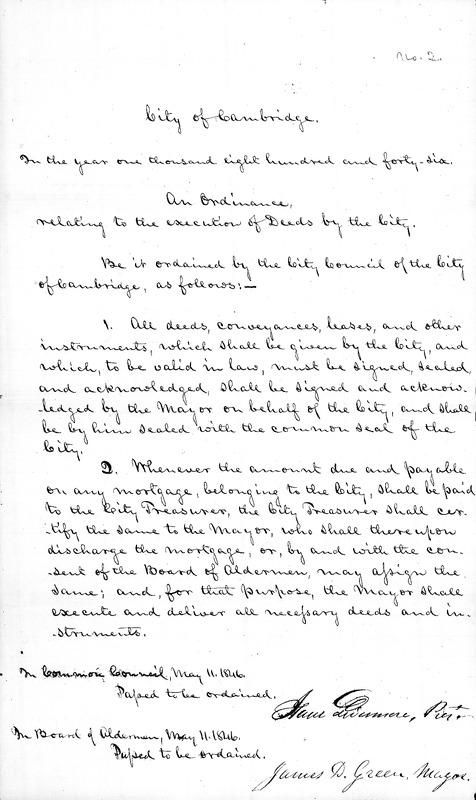 No. 2.
City of Cambridge.
In the year one thousand eight hundred and forty-six.
An Ordinance,
relating to the execution of Deeds by the City.
Be it ordained by the City Council of the City
of Cambridge, as follows:—
1. All deeds, conveyances, leases, and other
instruments, which shall be given by the City, and
which, to be valid in law, must be signed, sealed,
and acknowledged, shall be signed and acknow-
-ledged by the Mayor on behalf of the City, and shall
be by him sealed with the common seal of the
City.
2. Whenever the amount due and payable
on any mortgage, belonging to the City, shall be paid
to the City Treasurer, the City Treasurer shall cer-
-tify the same to the Mayor, who shall thereupon
discharge the mortgage, or, by and with the con-
-sent of the Board of Aldermen, may assign the
same; and, for that purpose, the Mayor shall
execute and deliver all necessary deeds and in-
-struments.
In Common Council, May 11. 1846.
Passed to be ordained.
Livermore, Prest.
In Board of Aldermen, May 11. 1846.
Passed to be ordained.
James D. Green, Mayor.